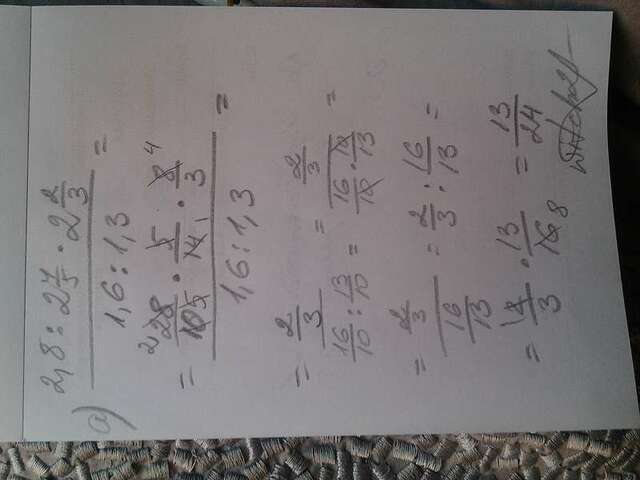 a) (2,8 : 2 4/5 · 2 2/3) / (1,6 : 1,3) =
= (28/10 · 5/14 · 8/3) / (1,6 : 1,3) =
= (2/3) / (16/10 : 13/10) = (2/3) / (16/10 · 10/13) =
= (2/3) / (16/13) = 2/3 : 16/13 =
= 2/3 · 13/16 8 = 13/24